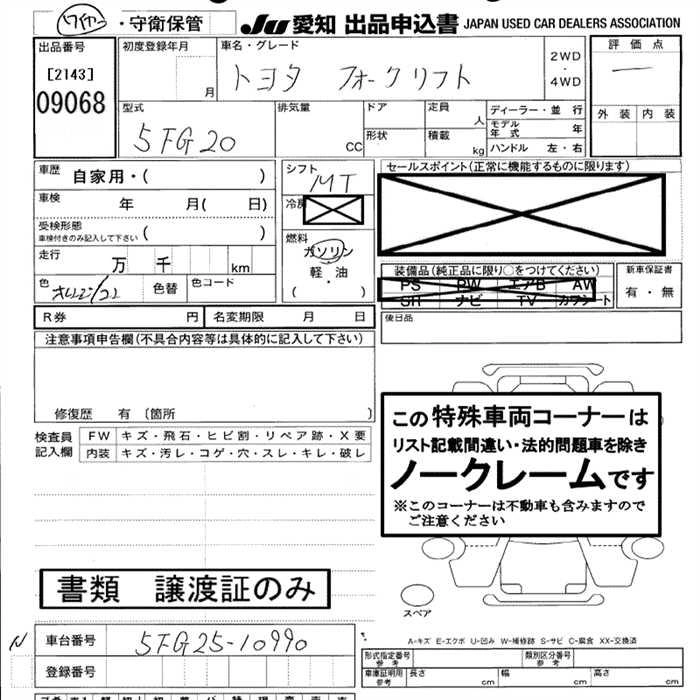 ワイヤー・守衛保管
JU 愛知 出品申込書 JAPAN USED CAR DEALERS ASSOCIATION
出品番号
[2143]
09068
初度登録年月
月
車名・グレード
トヨタ フォークリフト
2WD
・
4WD
評価点
一
外装 内装
型式
5FG20
排気量
CC
ドア
形状
定員
人
積載
kg
ディーラー・並 行
モデル
年 式
年
ハンドル 左・右
車歴
自家用・( )
車検
年 月( 日)
受検形態
車検付きのみ記入して下さい
( )
走行
万 千 km
色
オレンジ/22
色替
色コード
シフト
MT
冷房
燃料
ガソリン
軽・油
( ・ )
セールスポイント(正常に機能するものに限ります)
装備品(純正品に限り○をつけてください)
PS PW エアB AW
SR ナビ TV カワシート
新車保証書
有・無
R券 円 名変期限 月 日
後日品
注意事項申告欄(不具合内容等は具体的に記入して下さい)
修復歴 有 〔箇所 〕
検査員
記入欄
FW キズ・飛石・ヒビ割・リペア跡・X要
内装 キズ・汚レ・コゲ・穴・スレ・キレ・破レ
この特殊車両コーナーは
リスト記載間違い・法的問題車を除き
ノークレームです
※このコーナーは不動車も含みますので
ご注意ください
書類 譲渡証のみ
スペア
N
車台番号
5FG25-10990
登録番号
A-キズ E-エクボ U-凹み W-補修跡 S-サビ C-腐食 XX-交換済
形式指定番号
参 考
類別区分番号
参 考
車庫証明用
参 考
長さ cm 幅 cm 高さ cm